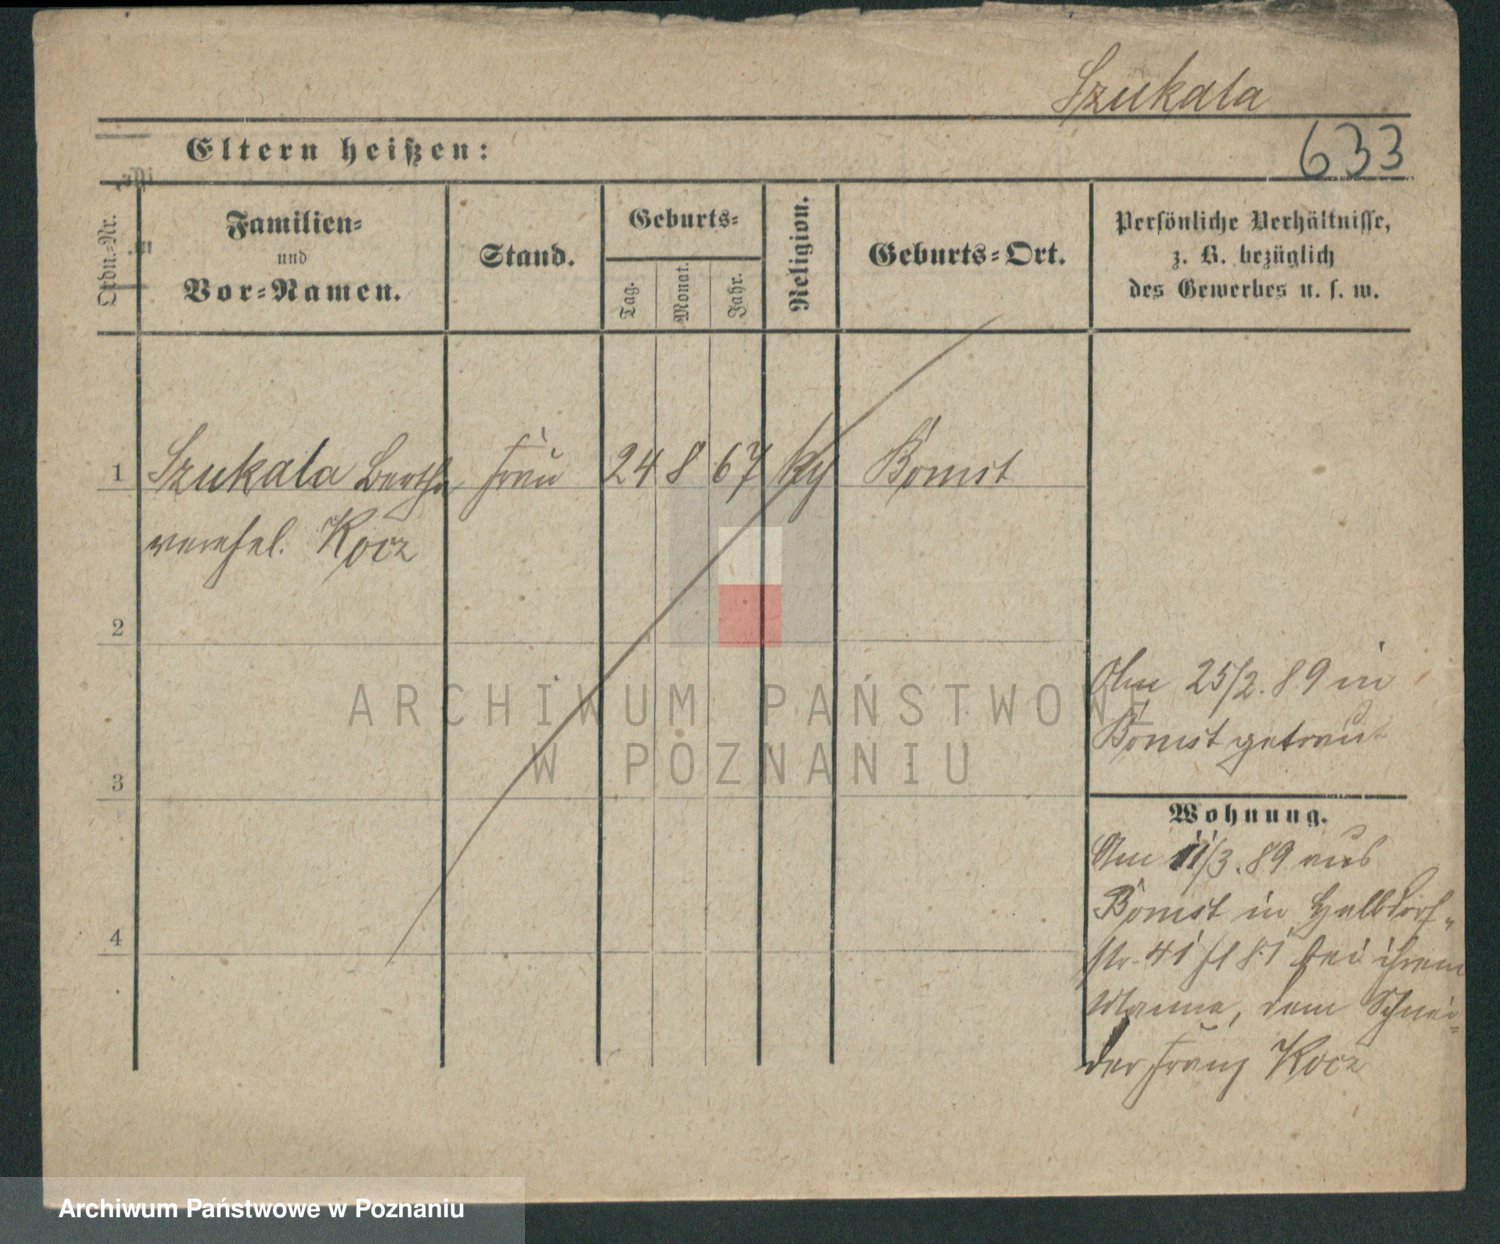 Szukala
633
Eltern heißen:
Ordn.-Nr.
Familien-
und
Vor-Namen.
Stand.
Geburts-
Tag.
Monat.
Jahr.
Religion.
Geburts-Ort.
Persönliche Verhältnisse,
z. B. bezüglich
des Gewerbes u. s. w.
1 Szukala Bertha Frau 24 8 67 Bomst
verehel. Kocz
2
3
4
25/2. 89 in
Bomst getraut
Wohnung.
Am 11/3. 89 aus
Bomst in Halbdorf-
str. 41 bei ihrem
Manne, dem Schnei-
der Franz Kocz
ARCHIWUM PAŃSTWOWE
W POZNANIU
Archiwum Państwowe w Poznaniu